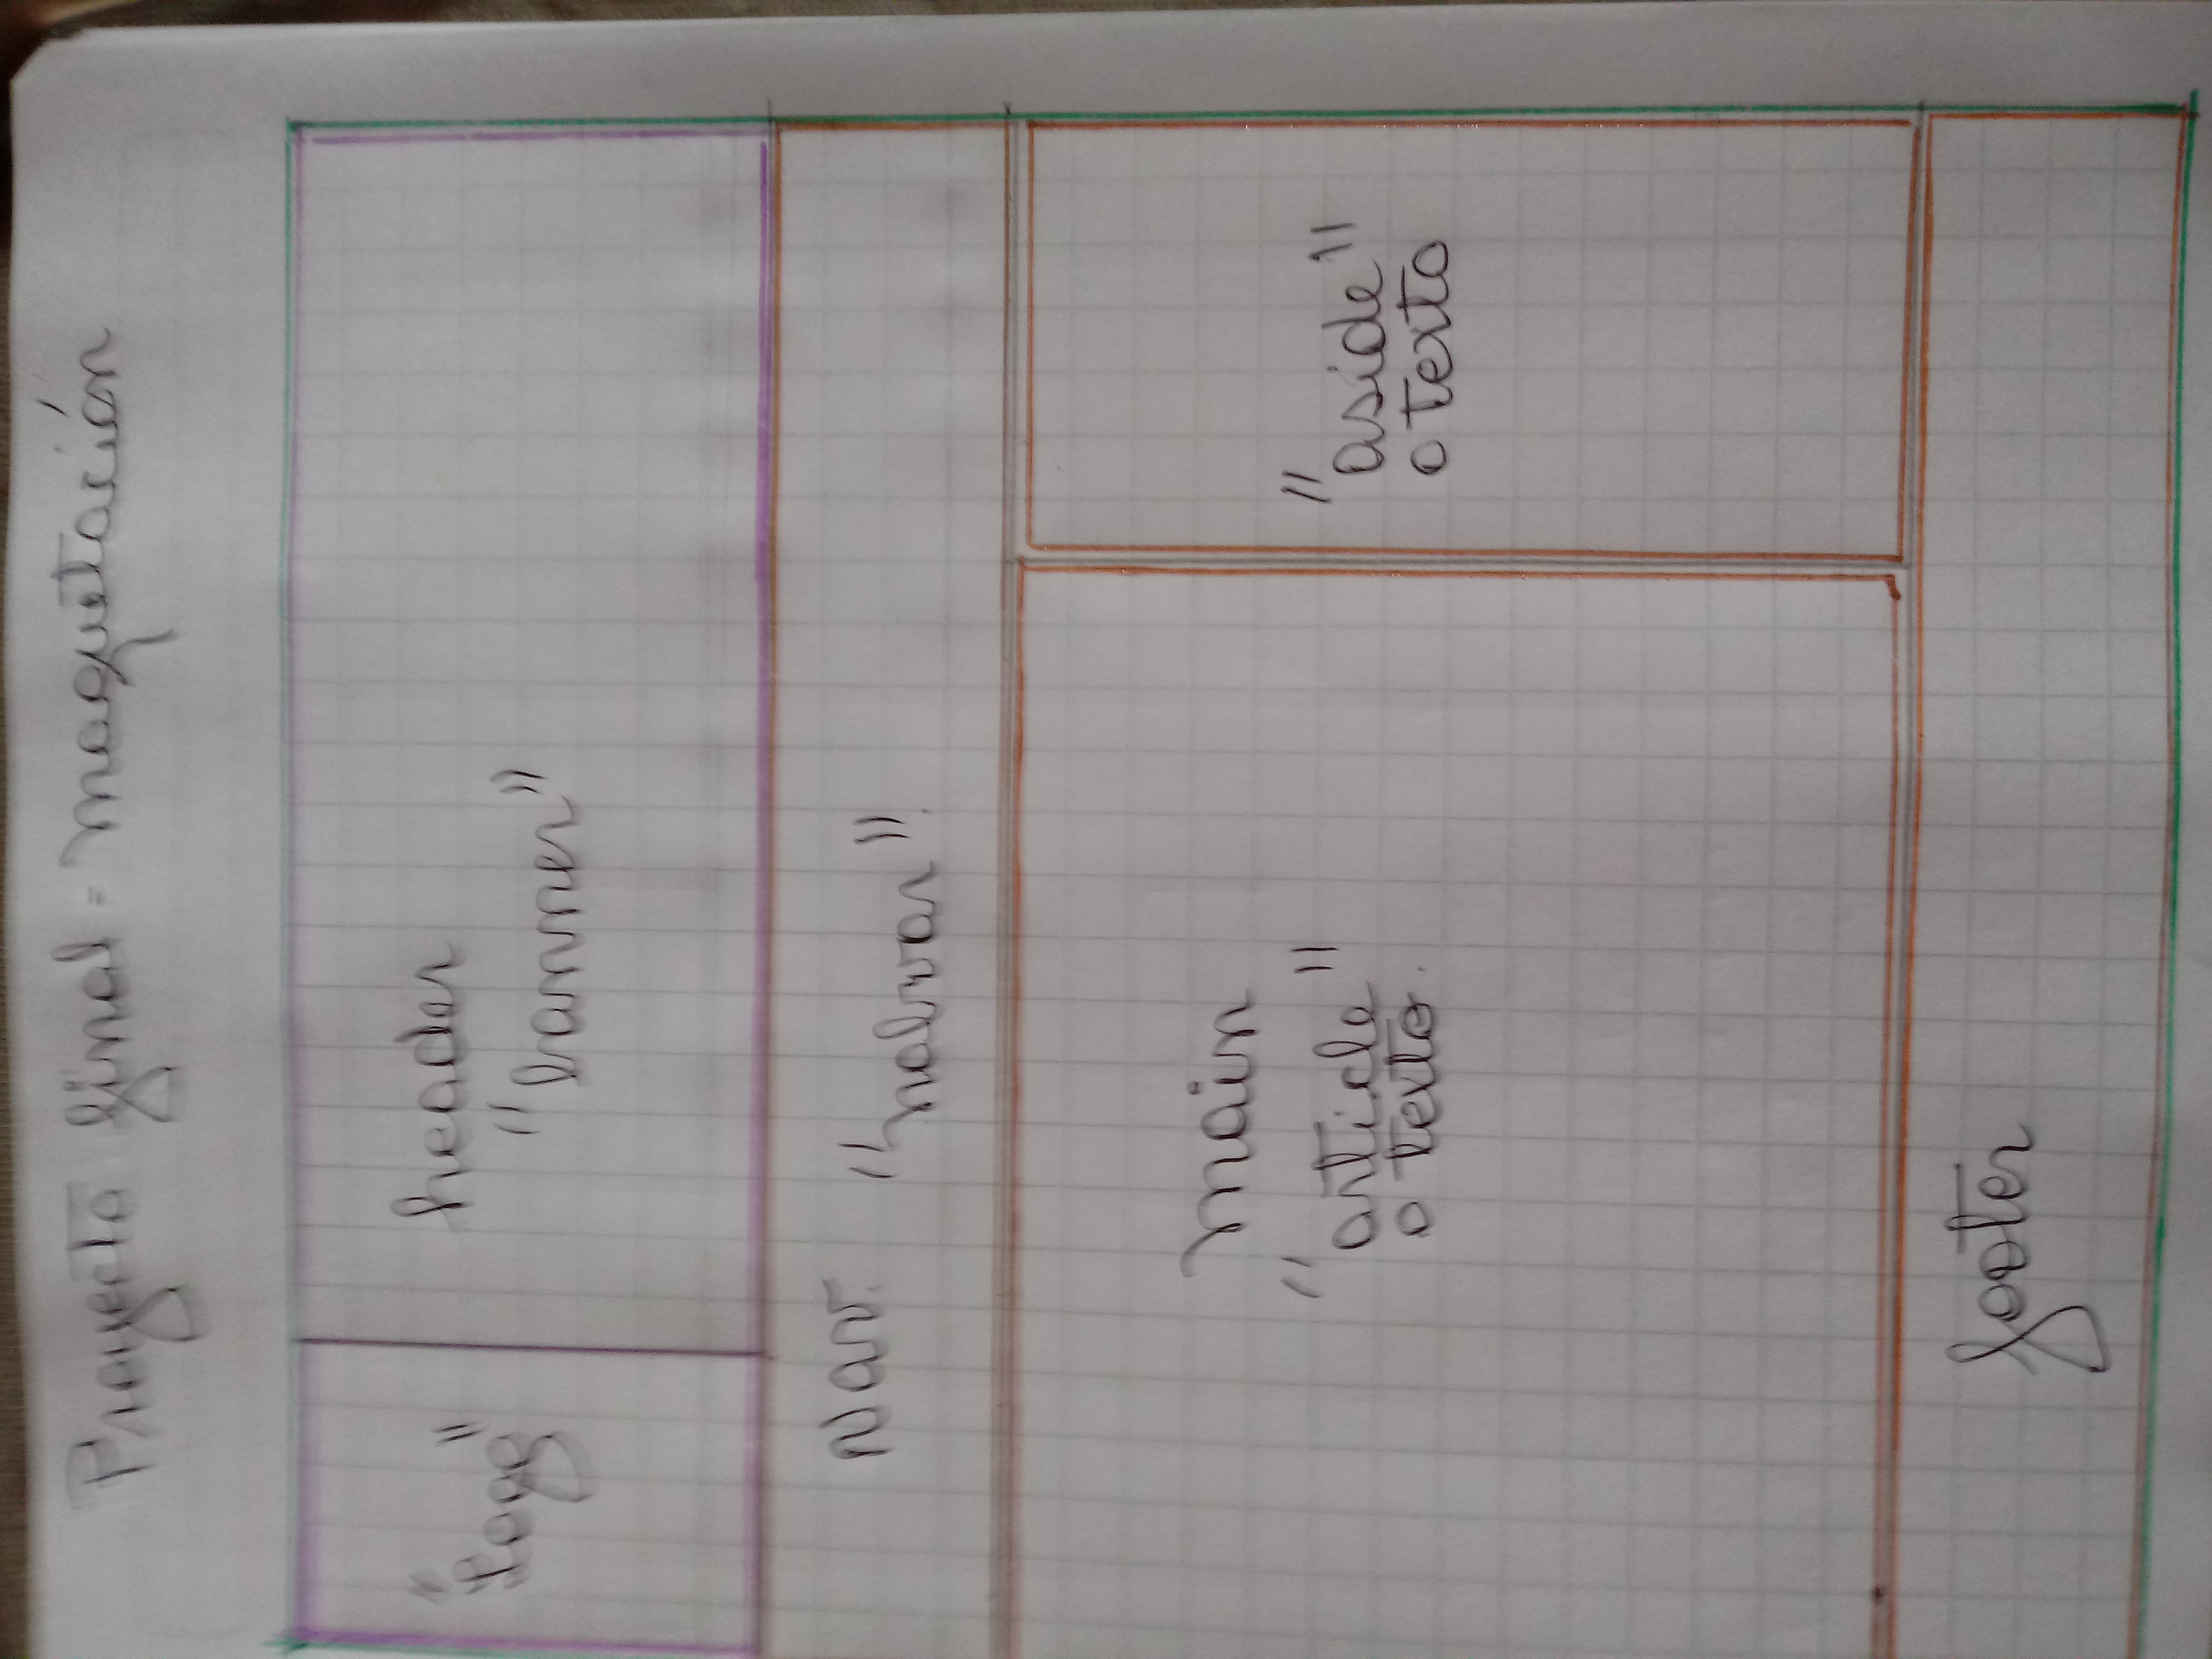 Proyecto final = maquetación
"Logo"
header
"banner"
Nav.
"nabvar".
main
"article"
o texto.
"aside"
o texto
footer